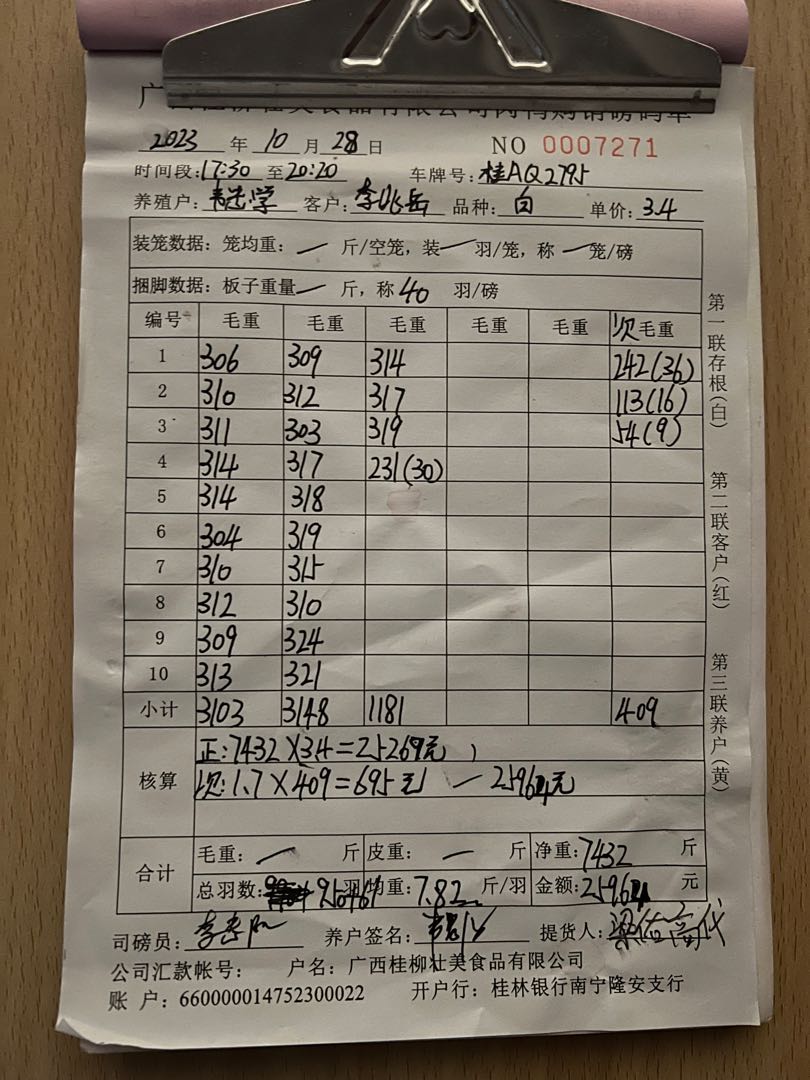 2023 年 10 月 28 日 NO 0007271
时间段: 17:30 至 20:20 车牌号: 桂AQ2795
养殖户: 客户: 李兆岳 品种: 白 单价: 3.4
装笼数据: 笼均重: 一 斤/空笼, 装 一 羽/笼, 称 一 笼/磅
捆脚数据: 板子重量 一 斤, 称 40 羽/磅
编号 毛重 毛重 毛重 毛重 毛重 次毛重
1 306 309 314 242(36)
2 310 312 317 113(16)
3 311 303 319 54(9)
4 314 317 231(30)
5 314 318
6 304 319
7 310 315
8 312 310
9 309 324
10 313 321
小计 3103 3148 1181 409
核算 正:7432×3.4=25269元
次:1.7×409=695元 — 25964元
合计 毛重: 一 斤 皮重: 一 斤 净重: 7432 斤
总羽数: 950+61 羽 均重: 7.82 斤/羽 金额: 25964 元
司磅员: 养户签名: 提货人:
公司汇款帐号: 户名: 广西桂柳壮美食品有限公司
账 户: 660000014752300022 开户行: 桂林银行南宁隆安支行
第一联存根(白)
第二联客户(红)
第三联养户(黄)